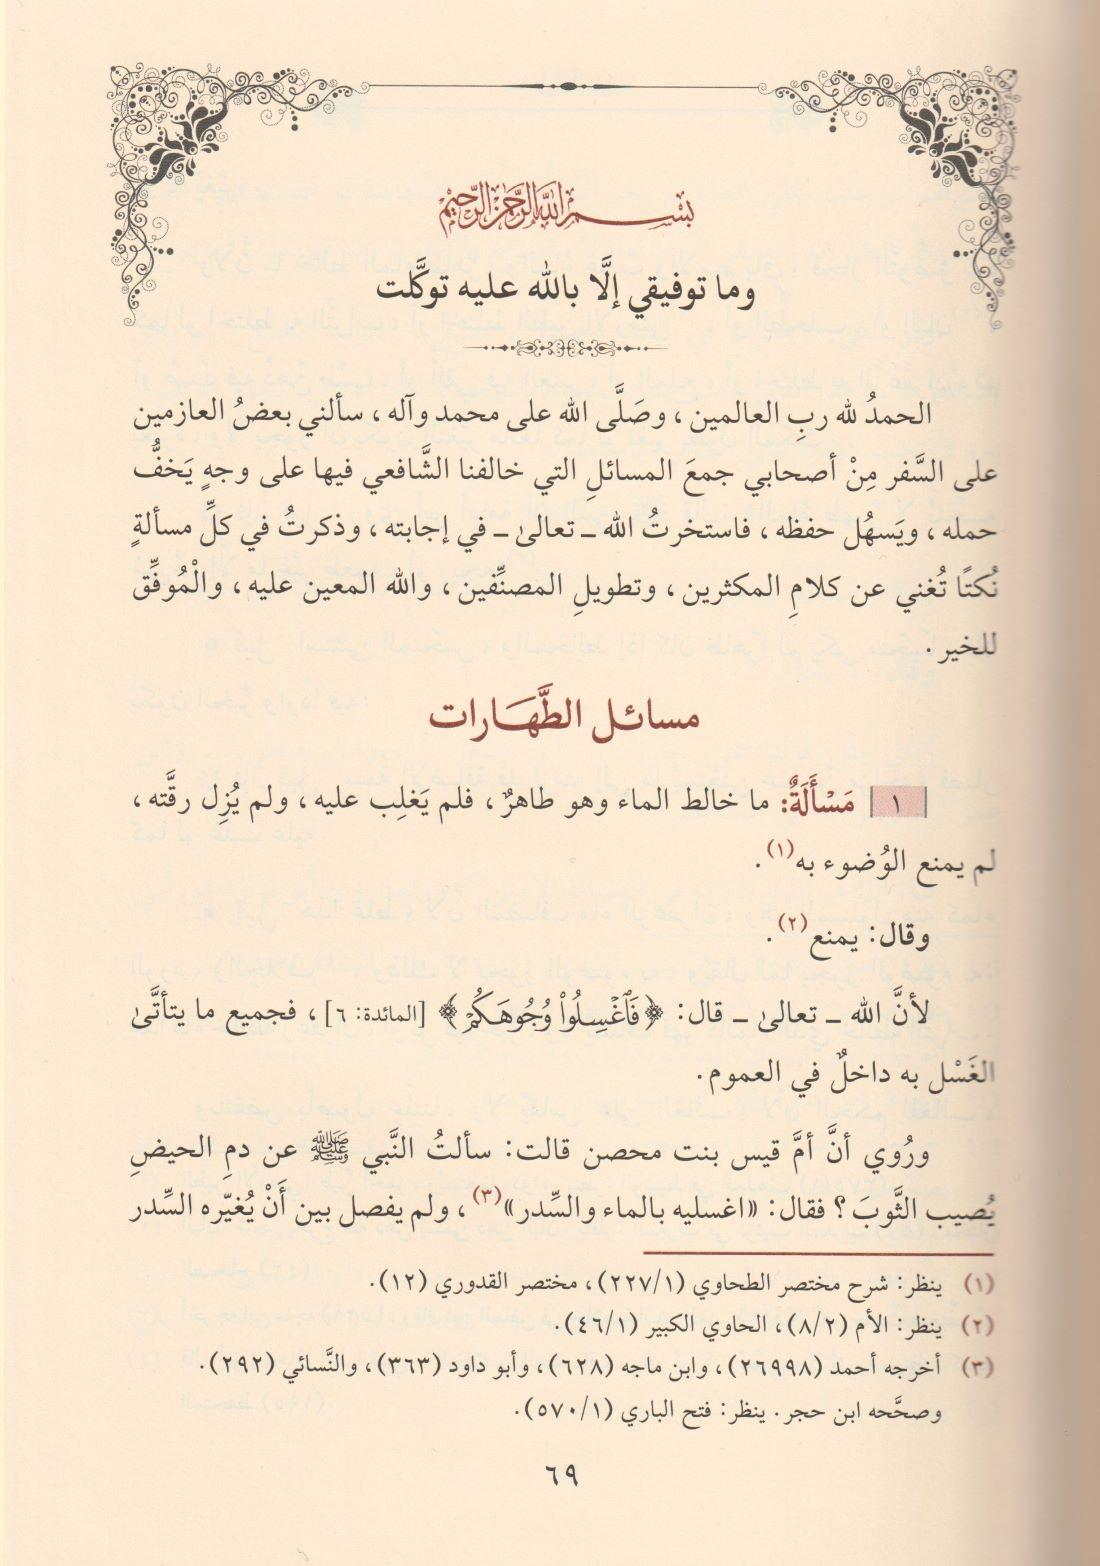 بسم الله الرحمن الرحيم
وما توفيقي إلَّا بالله عليه توكَّلت
الحمدُ لله ربِ العالمين، وصَلَّى الله على محمد وآله، سألني بعضُ العازمين
على السَّفر مِنْ أصحابي جمعَ المسائلِ التي خالفنا الشَّافعي فيها على وجهٍ يَخفُّ
حمله، ويَسهُل حفظه، فاستخرتُ الله ـ تعالىٰ ـ في إجابته، وذكرتُ في كلِّ مسألةٍ
نُكتًا تُغني عن كلامِ المكثرين، وتطويلِ المصنِّفين، والله المعين عليه، والْمُوفِّق
للخير.
مسائل الطَّهَارات
١ مَسْأَلَةٌ: ما خالط الماء وهو طاهرٌ، فلم يَغلِب عليه، ولم يُزِل رقَّته،
لم يمنع الوُضوء به(١).
وقال: يمنع(٢).
لأنَّ الله ـ تعالىٰ ـ قال: ﴿فَٱغۡسِلُواْ وُجُوهَكُمۡ﴾ [المائدة: ٦]، فجميع ما يتأتَّىٰ
الغَسْل به داخلٌ في العموم.
ورُوي أنَّ أمَّ قيس بنت محصن قالت: سألتُ النَّبي ﷺ عن دمِ الحيضِ
يُصيب الثَّوبَ؟ فقال: «اغسليه بالماء والسِّدر»(٣)، ولم يفصل بين أَنْ يُغيّره السِّدر
(١) ينظر: شرح مختصر الطحاوي (٢٢٧/١)، مختصر القدوري (١٢).
(٢) ينظر: الأم (٨/٢)، الحاوي الكبير (٤٦/١).
(٣) أخرجه أحمد (٢٦٩٩٨)، وابن ماجه (٦٢٨)، وأبو داود (٣٦٣)، والنَّسائي (٢٩٢).
وصحَّحه ابن حجر. ينظر: فتح الباري (٥٧٠/١).
٦٩